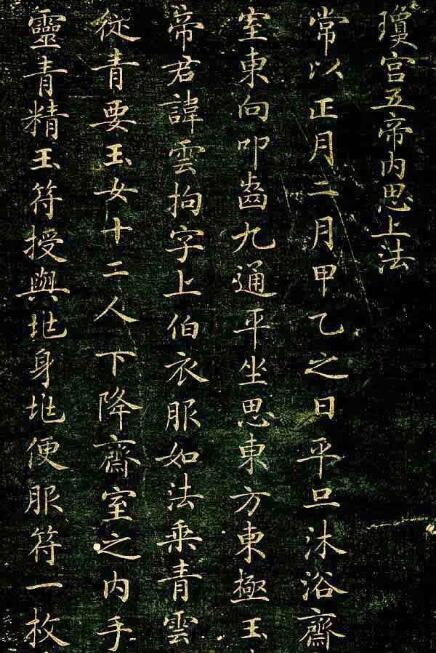 瓊宫五帝内思上法
常以正月二月甲乙之日平旦沐浴齋
室東向叩齒九通平坐思東方東極玉
帝君諱雲拘字上伯衣服如法乘青雲
從青要玉女十二人下降齋室之内手
靈青精玉符授與兆身兆便服符一枚